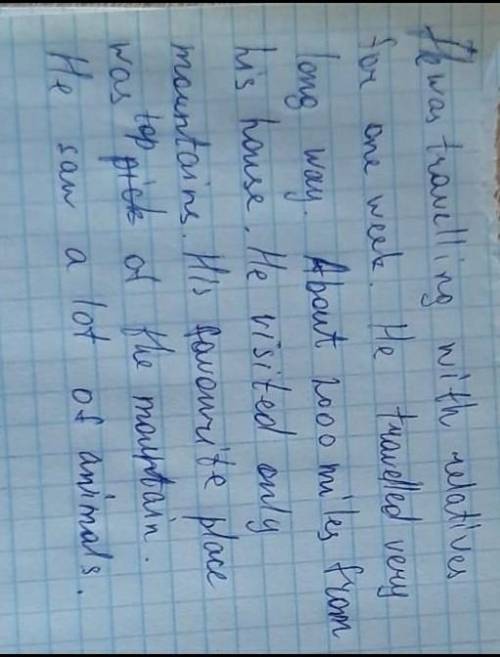 He was travelling with relatives
for one week. He travelled very
long way. About 2000 miles from
his house. He visited only
mountains. His favourite place
was top of the mountain.
He saw a lot of animals.